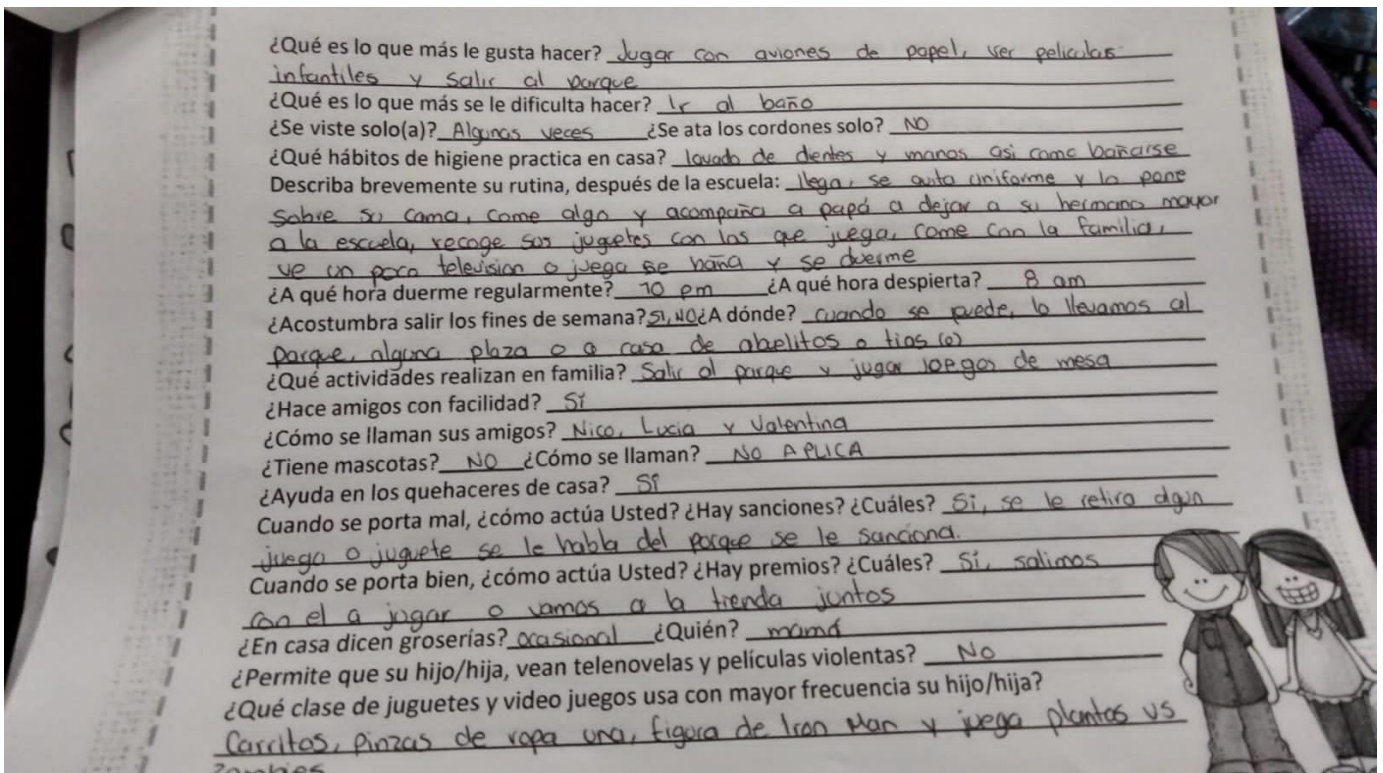 ¿Qué es lo que más le gusta hacer? Jugar con aviones de papel, ver peliculas
infantiles y salir al parque
¿Qué es lo que más se le dificulta hacer? Ir al baño
¿Se viste solo(a)? Algunas veces ¿Se ata los cordones solo? NO
¿Qué hábitos de higiene practica en casa? lavado de dientes y manos asi como bañarse
Describa brevemente su rutina, después de la escuela: llega, se quita uniforme y lo pone
sobre su cama, come algo y acompaña a papá a dejar a su hermano mayor
a la escuela, recoge sus juguetes con los que juega, come con la familia,
ve un poco television o juega se baña y se duerme
¿A qué hora duerme regularmente? 10 pm ¿A qué hora despierta? 8 am
¿Acostumbra salir los fines de semana? SI, NO ¿A dónde? cuando se puede, lo llevamos al
parque, alguna plaza o a casa de abuelitos o tias (o)
¿Qué actividades realizan en familia? Salir al parque y jugar juegos de mesa
¿Hace amigos con facilidad? Sí
¿Cómo se llaman sus amigos? Nico, Lucia y Valentina
¿Tiene mascotas? NO ¿Cómo se llaman? NO APLICA
¿Ayuda en los quehaceres de casa? Sí
Cuando se porta mal, ¿cómo actúa Usted? ¿Hay sanciones? ¿Cuáles? Si, se le retira algun
juego o juguete se le habla del porque se le sanciona.
Cuando se porta bien, ¿cómo actúa Usted? ¿Hay premios? ¿Cuáles? Sí, salimos
con el a jugar o vamos a la tienda juntos
¿En casa dicen groserías? ocasional ¿Quién? mamá
¿Permite que su hijo/hija, vean telenovelas y películas violentas? No
¿Qué clase de juguetes y video juegos usa con mayor frecuencia su hijo/hija?
Carritos, pinzas de ropa una, figura de Iron Man y juega plantas vs
Zombies